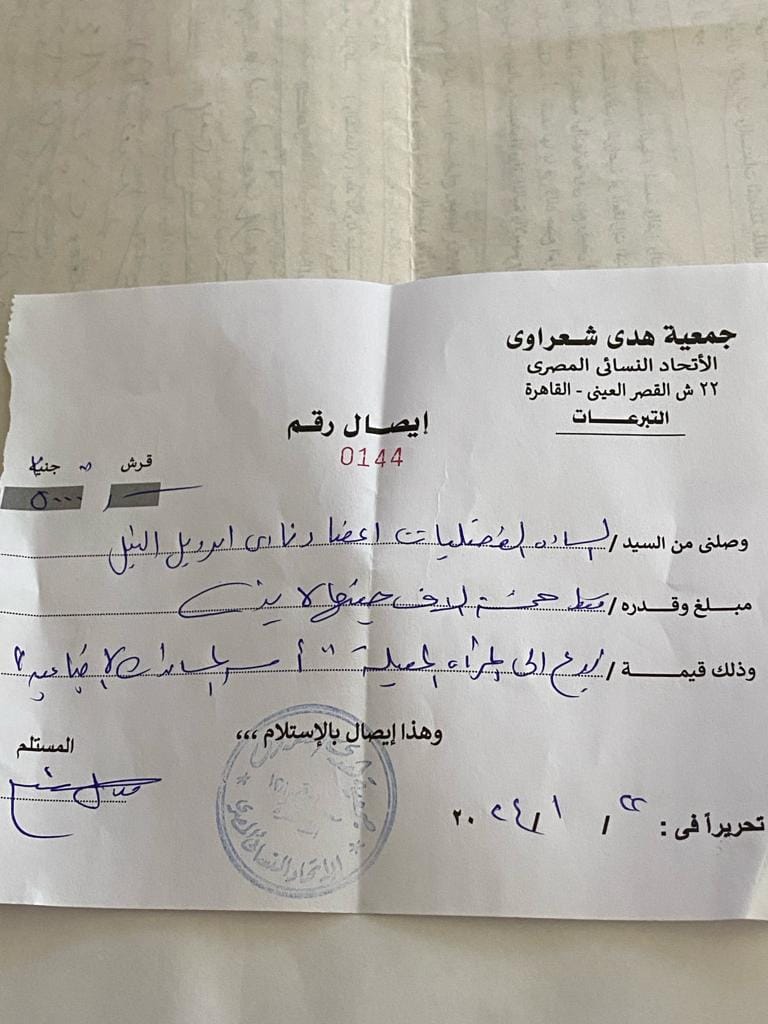 جمعية هدى شعراوى
الأتحاد النسائى المصرى
٢٢ ش القصر العينى - القاهرة
التبرعات
إيصال رقم
0144
قرش جنيه
٥٠٠٠
وصلنى من السيد / الساده القنصليات اعضاء نادى انرويل النيل
مبلغ وقدره / فقط خمسة الاف جنيها لا غير
وذلك قيمة / تبرع الى المرأه المعيلة "
وهذا إيصال بالإستلام ،،،
المستلم
تحريراً فى : ٢٢ / ١ / ٢٠٢٤
الاتحاد النسائى المصرى